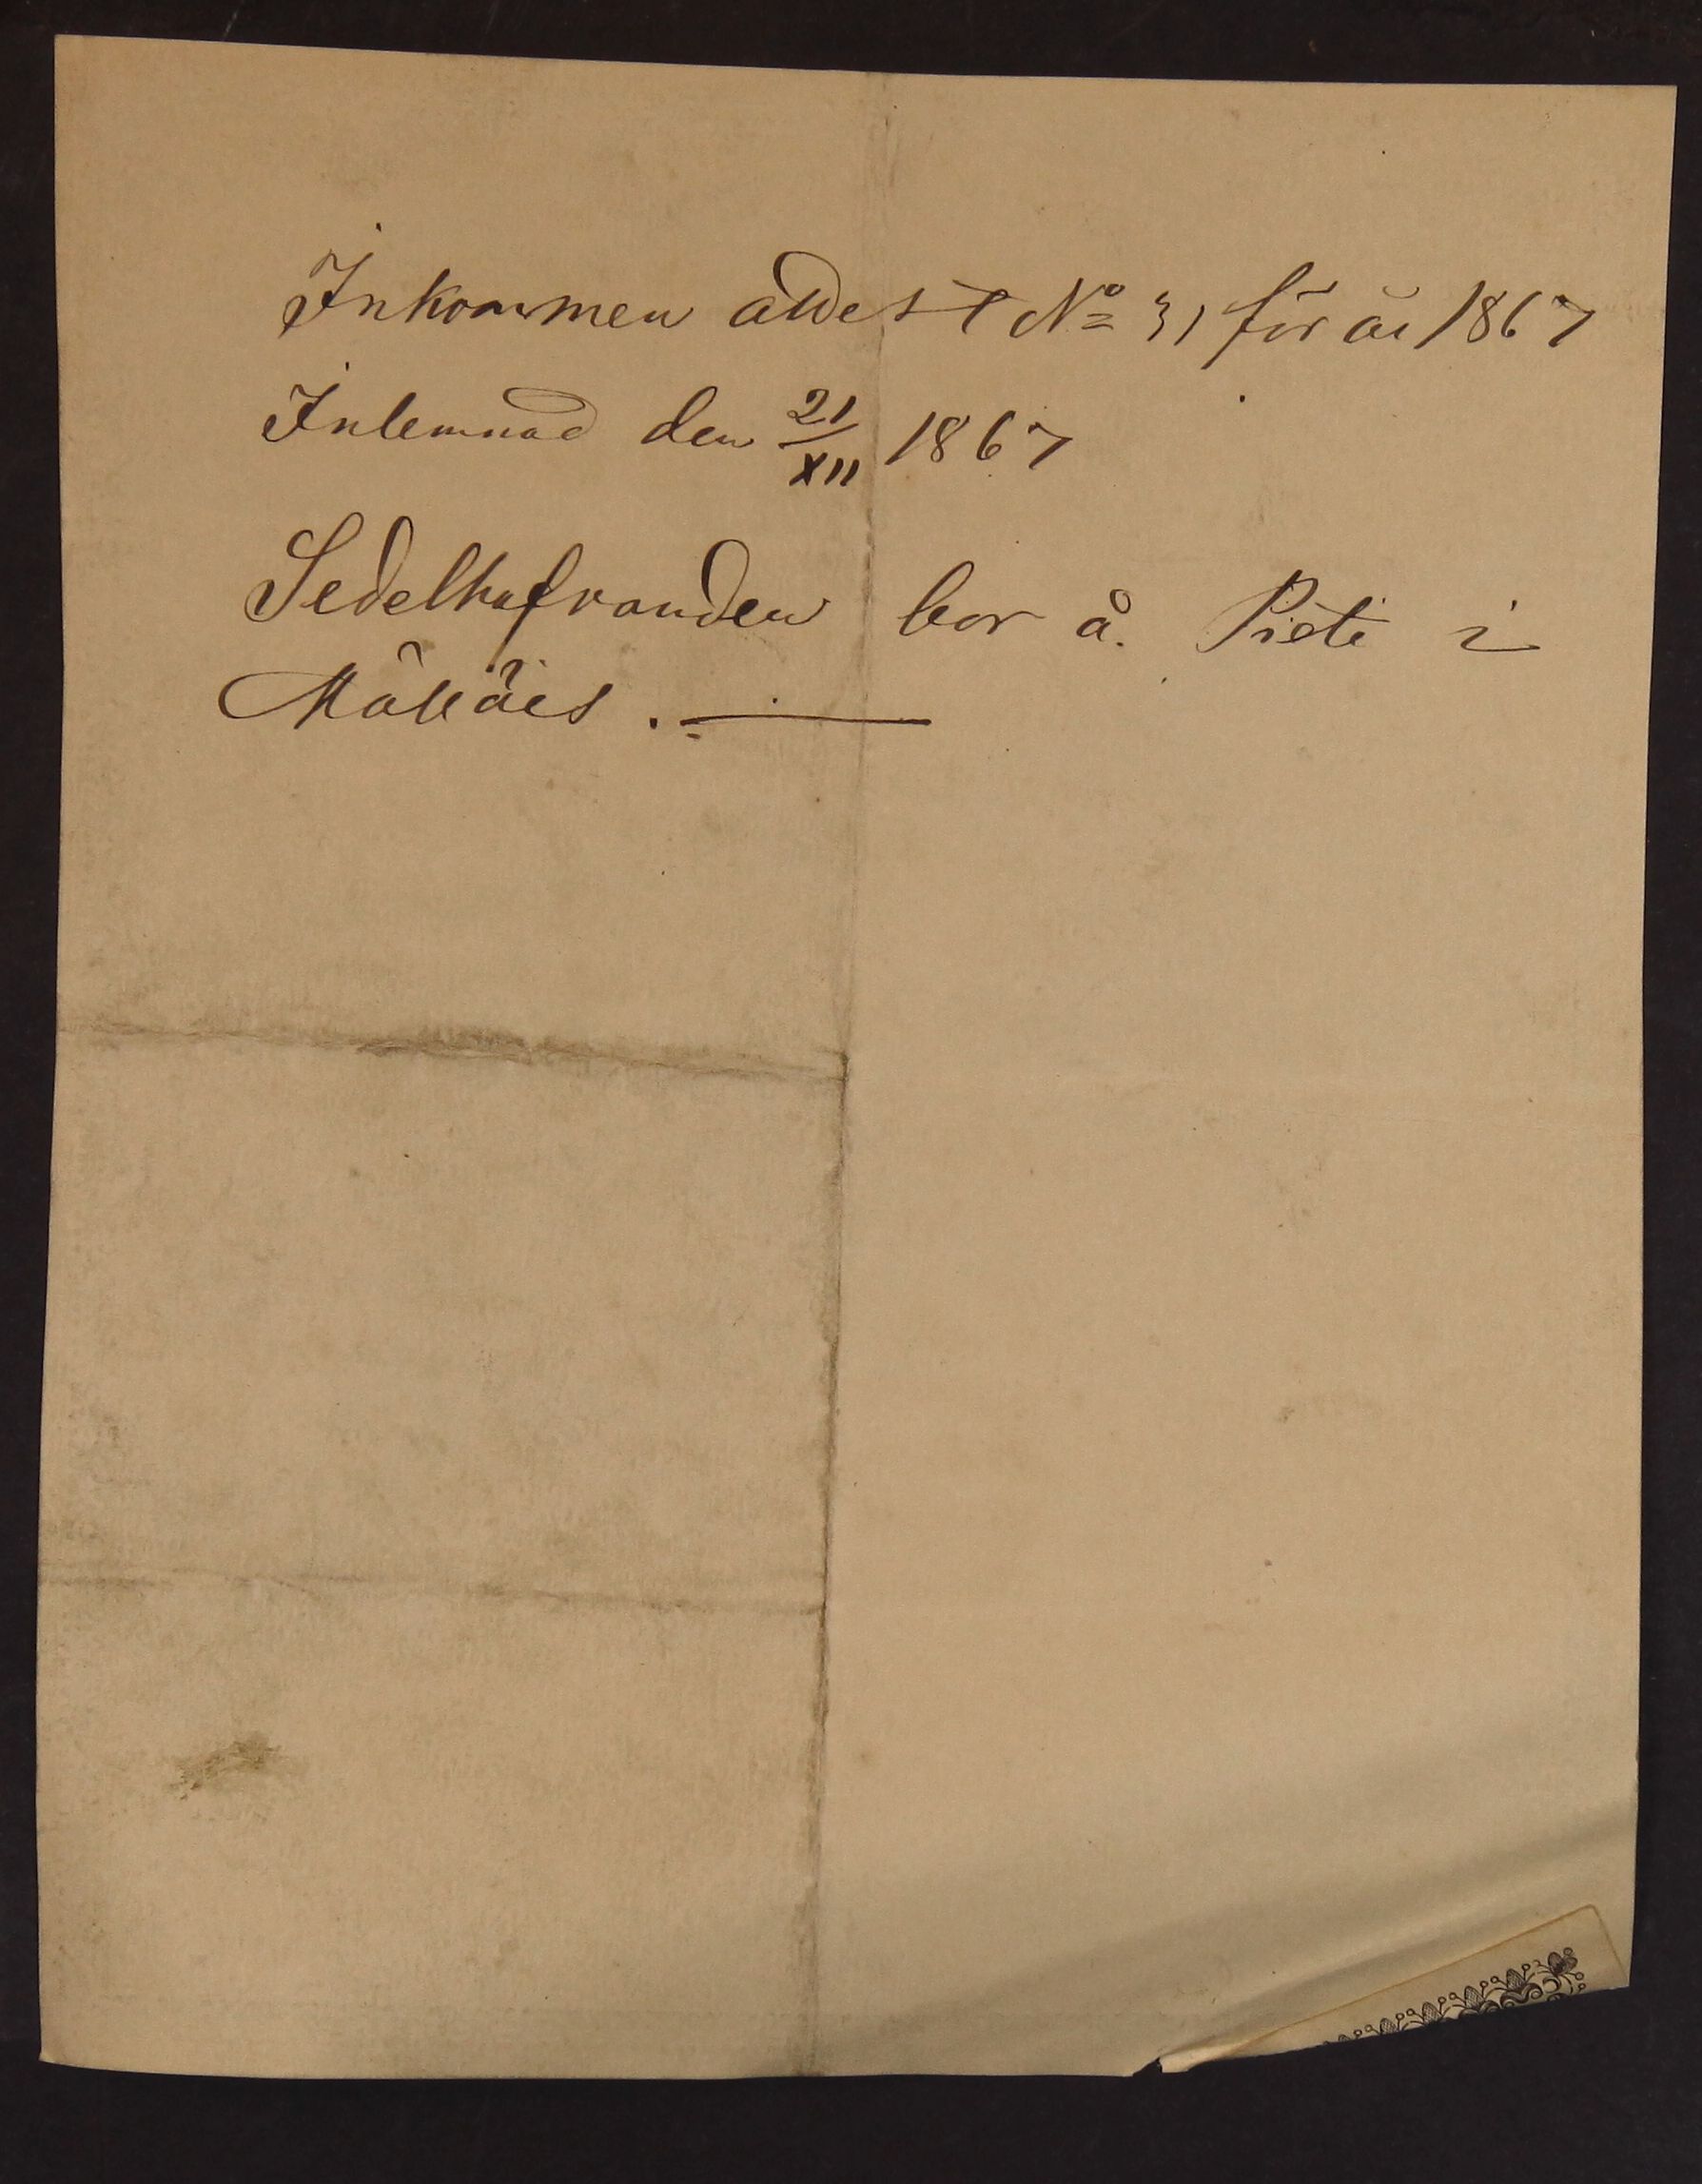 Inkommen attest No 31 för år 1867
Inlemnad den 21/XII 1867
Sedelhafvanden bor å. Pieti i